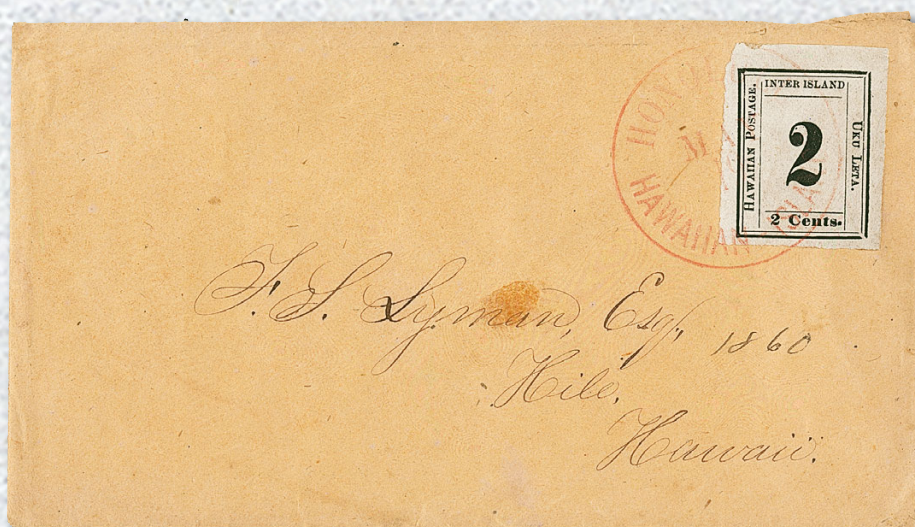 HAWAIIAN
INTER ISLAND
HAWAIIAN POSTAGE.
2
UKU LETA.
2 Cents.
F. S. Lyman, Esq,
1860
Hilo,
Hawaii.